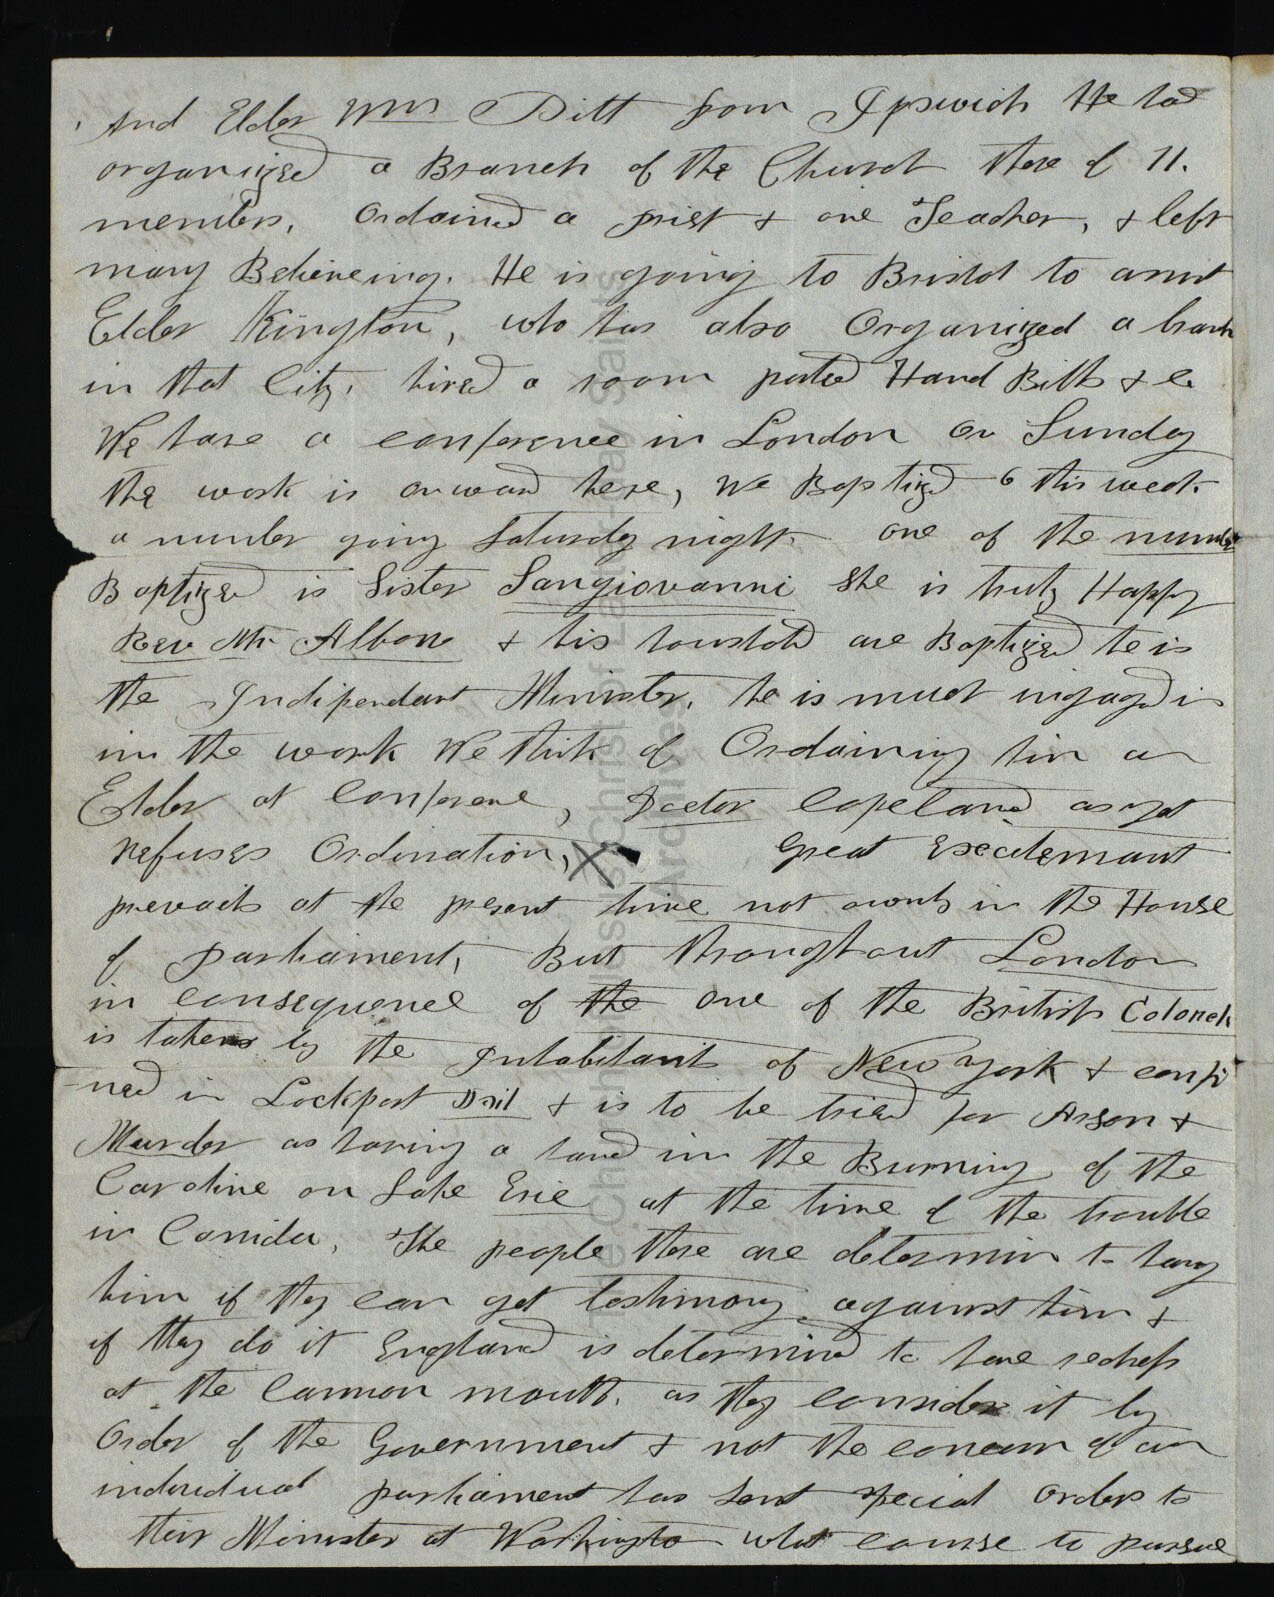 And Elder Wm Pitt from Ipswich He had
organized a Branch of the Church there of 11.
members, Ordained a priest & one Teacher, & left
many Believeing. He is going to Bristol to assist
Elder Kington, who has also Organized a branch
in that City, hired a room posted Hand Bills & c
We have a conference in London on Sunday
the work is onward here, We Baptized 6 this week
a number going Saturday night one of the number
Baptized is Sister Sangiovanni She is truly Happy
Rev Mr Albon & his houshold are Baptized he is
the Indipendant Minister, he is much ingaged in
in the work We think of Ordaining him an
Elder at Conference, Doctor Copeland as yet
refuses Ordination, X Great Excitemant
prevails at the present time not ownly in the House
of parliament, But throughout London
in consequence of the one of the British Colonels
is taken by the Inhabitants of New York & confi
ned in Lockport Jail & is to be tried for Arson &
Murder as having a hand in the Burning of the
Caroline on Lake Erie at the time of the trouble
in Canida, The people there are determin to hang
him if they can get testimony against him &
if they do it England is determined to have redress
at the Cannon mouth. as they consider it by
Order of the Government & not the concern of an
individual parliament has sent special orders to
their Minister at Washington what course to pursue
The Church of Jesus Christ of Latter-day Saints
Archives